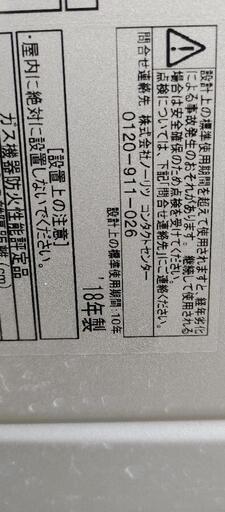 設計上の標準使用期間を超えて使用されますと、経年劣化
による事故発生のおそれがあります。継続して使用される
場合は安全確保のため点検を受けてください。
点検については、下記「問合せ連絡先」にご連絡ください。
問合せ連絡先 株式会社ノーリツ コンタクトセンター
0120-911-026
設計上の標準使用期間:10年
'18年製
[設置上の注意]
・屋内に絶対に設置しないでください。
ガス機器防火性能評定品
距離(cm)